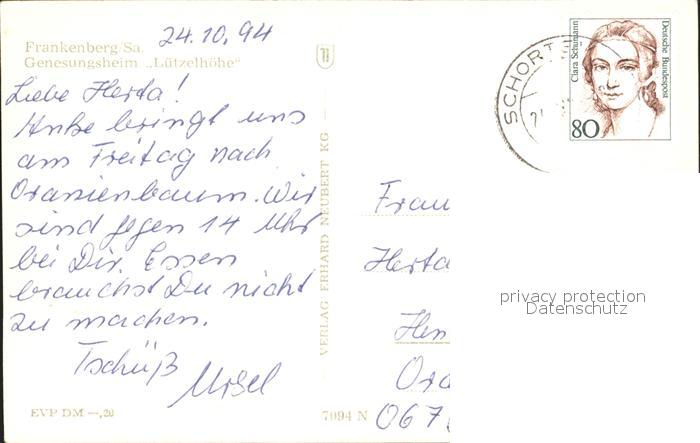 24.10.94
Frankenberg/Sa.
Genesungsheim „Lützelhöhe"
Liebe Herta!
Anke bringt uns
am Freitag nach
Oranienbaum. Wir
sind gegen 14 Uhr
bei Dir. Essen
brauchst Du nicht
zu machen.
Tschüß
Ursel
EVP DM —,20
VERLAG ERHARD NEUBERT KG
7094 N
SCHORT
Clara Schumann
Deutsche Bundespost
80
Frau
Herta
Hen
Ora
067
privacy protection
Datenschutz